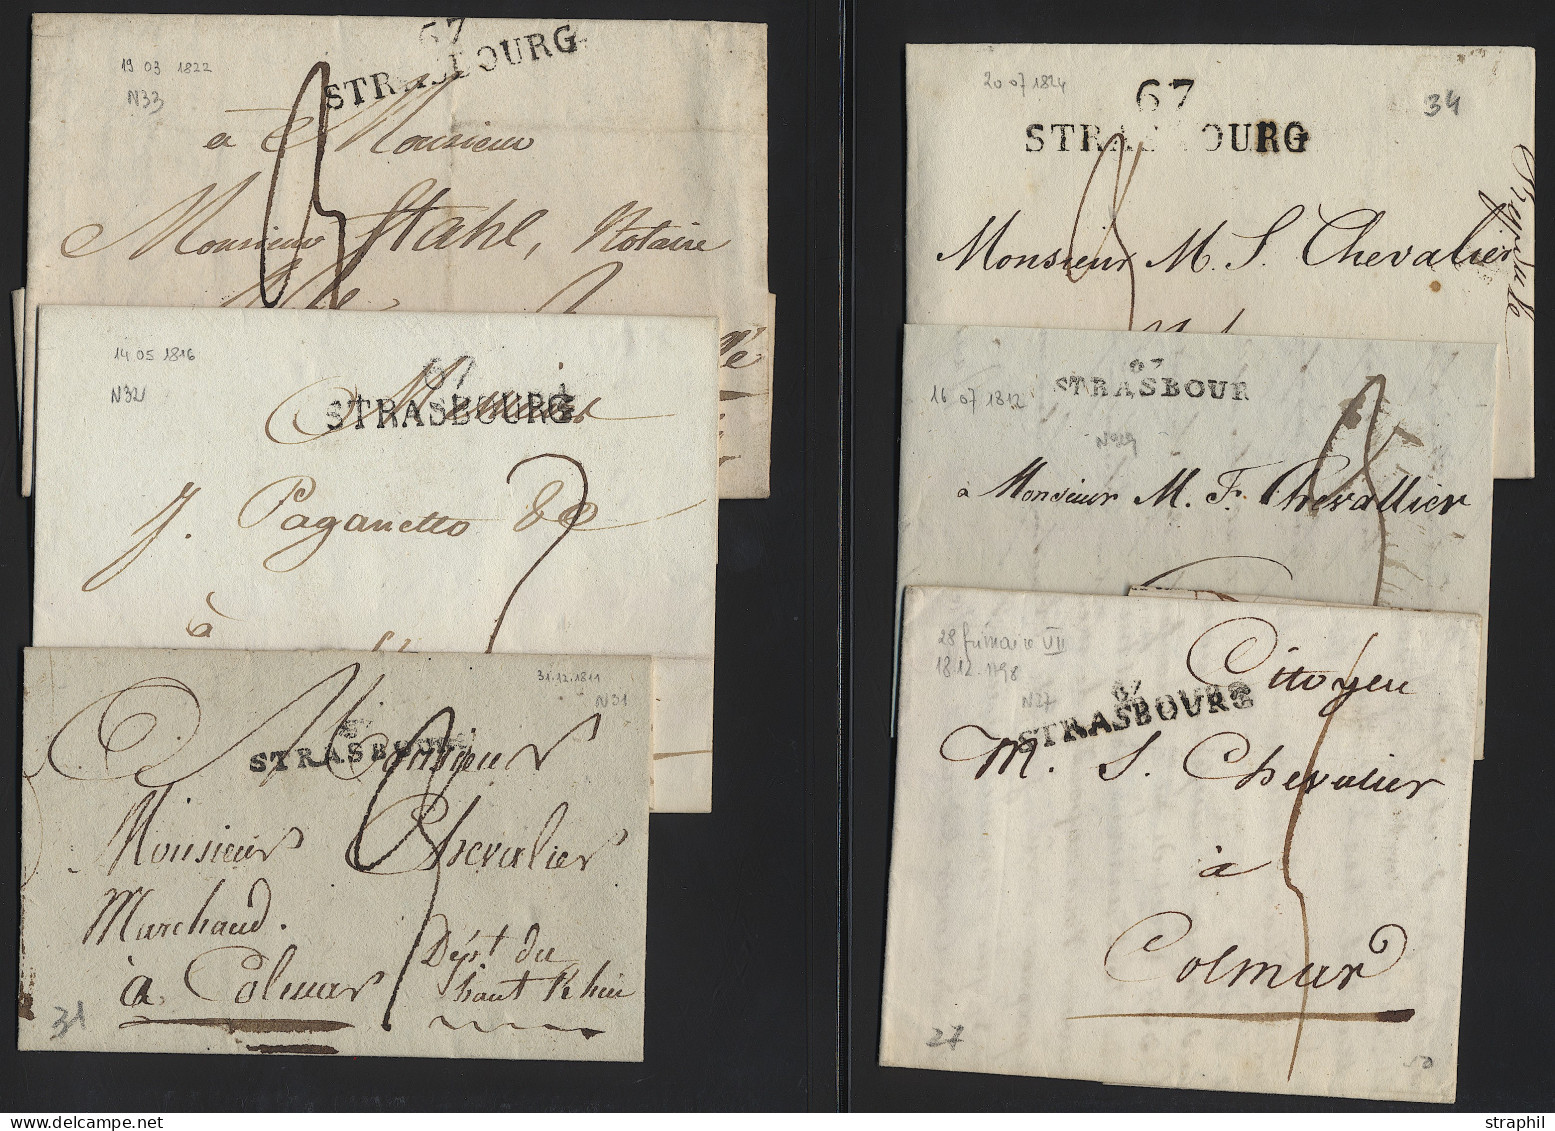 67
STRASBOURG
19 03 1822
N33
à Monsieur
Monsieur Stahl, Notaire
14 05 1816
N32
67
STRASBOURG
Messieurs
J. Paganetto &C
à
31.12.1811
N31
STRASBOURG
Monsieur
Monsieur Chevalier
Marchand.
à Colmar
Dépt du
haut Rhin
31
20 07 1824
34
67
STRASBOURG
Monsieur M. S. Chevalier
67
STRASBOUR
16 07 1812
N°29
à Monsieur M. F. Chevallier
28 frimaire VII
18.12.1798
N27
67
STRASBOURG
Citoyen
M. S. Chevalier
à
Colmar
27
50
straphil